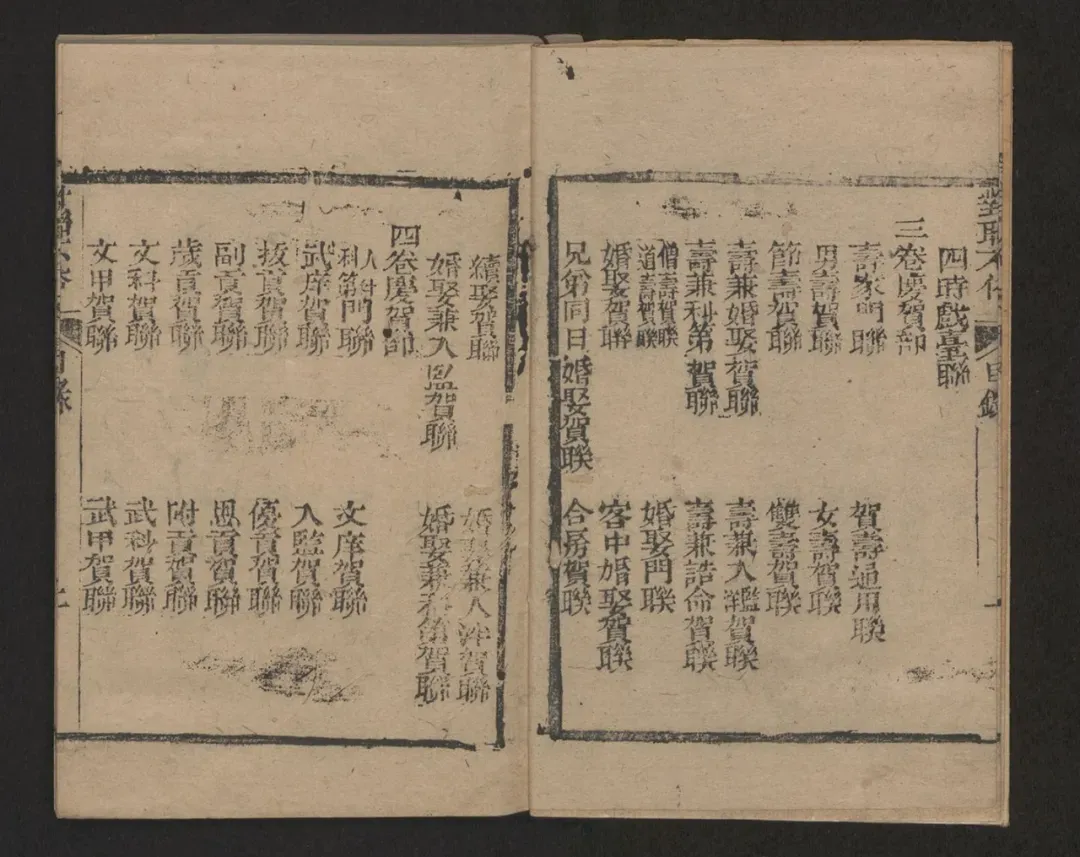 四時戲臺聯
三卷慶賀部
壽家門聯
賀壽通用聯
男壽賀聯
女壽賀聯
節壽賀聯
雙壽賀聯
壽兼婚娶賀聯
壽兼入鑑賀聯
壽兼科第賀聯
壽兼誥命賀聯
僧壽賀聯
道壽賀聯
婚娶門聯
婚娶賀聯
客中婚娶賀聯
兄弟同日婚娶賀聯
合房賀聯
續娶賀聯
婚娶兼入泮賀聯
婚娶兼入監賀聯
婚娶兼科第賀聯
四卷慶賀部
科第門聯
文庠賀聯
武庠賀聯
入監賀聯
拔貢賀聯
優貢賀聯
副貢賀聯
恩貢賀聯
歲貢賀聯
附貢賀聯
文科賀聯
武科賀聯
文甲賀聯
武甲賀聯
目錄